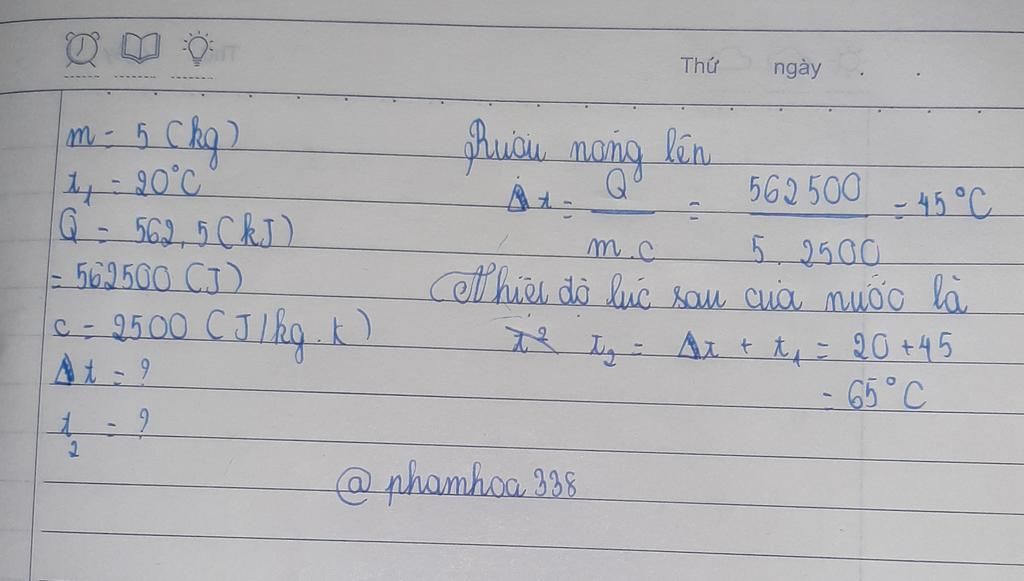 Thứ ngày . .
m = 5 (kg)
t₁ = 20°C
Q = 562,5 (kJ)
= 562500 (J)
c = 2500 (J/kg.k)
Δt = ?
t₂ = ?
Rượu nóng lên
Δt = Q / m.c = 562500 / 5.2500 = 45°C
Nhiệt độ lúc sau của nước là
t₂ = Δt + t₁ = 20 + 45
= 65°C
@phamhoa338